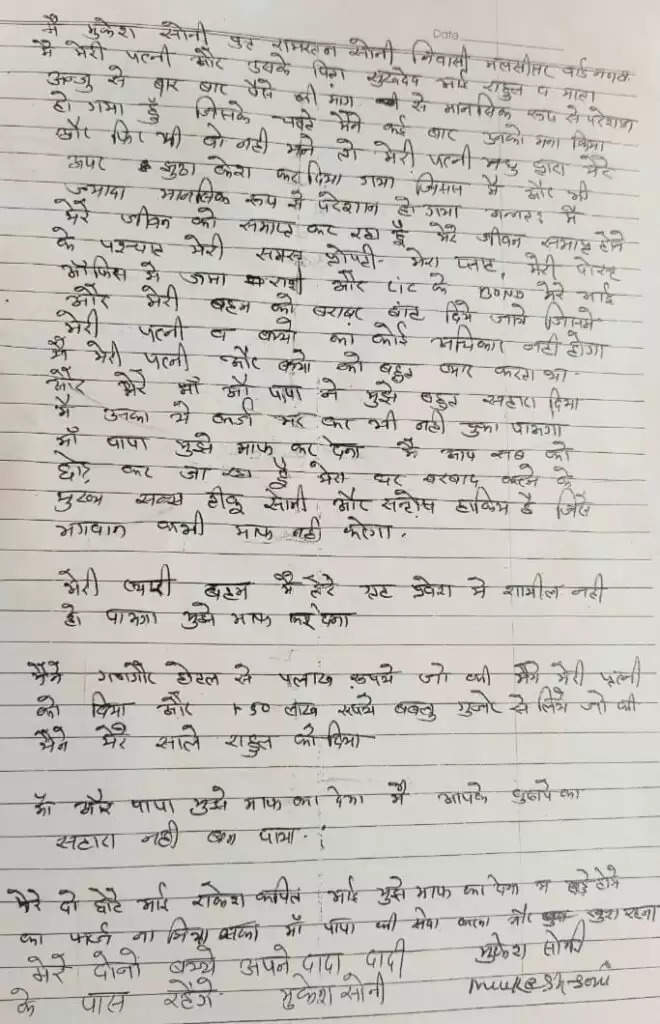 Date
मै मुकेश सोनी पुत्र रामरतन सोनी निवासी मलसीसर वार्ड
मै मेरी पत्नी और उसके पिता सुखदेव भाई राहुल व माता
अन्जु से बार बार पैसे की मांग से मानसिक रूप से परेशान
हो गया हुँ जिसके चलते मैंने कई बार उनको मना किया
और फिर भी वो नही माने तो मेरी पत्नी मधु द्वारा मेरे
ऊपर झुठा केश कर दिया गया जिससे मै और भी
ज्यादा मानसिक रूप से परेशान हो गया मै
मेरे जीवन को समाप्त कर रहा हुँ मेरे जीवन समाप्त होने
के पश्चात मेरी समस्त प्रोपर्टी- मेरा प्लाट, मेरी पोस्ट
ऑफिस मे जमा राशी और LIC के BOND मेरे भाई
और मेरी बहन को बराबर बांट दिये जाये जिसमे
मेरी पत्नी व बच्चो का कोई अधिकार नही होगा
मै मेरी पत्नी और बच्चो को बहुत प्यार करता था.
और मेरे माँ औ पापा ने मुझे बहुत सहारा दिया
मै उनका ये कर्जा मर कर भी नही चुका पाऊगा
माँ पापा मुझे माफ कर देना मै आप सब को
छोड़ कर जा रहा हुँ मेरा घर बरबाद करने के
मुख्य सोनी और सन्तोष हाकिम है जिसे
भगवान कभी माफ नही करेगा.
मेरी प्यारी बहन मै तेरे गृह प्रवेश मे शामील नही
हो पाऊगा मुझे माफ कर देना
मैंने गणगौर होटल से लाख रूपये जो की मैंने मेरी पत्नी
को दिया और 50 लाख रूपये बबलु गुर्जर से लिये जो की
मैंने मेरे साले राहुल को दिया
माँ और पापा मुझे माफ का देना मै आपके बुढापे का
सहारा नही बन पाया.
मेरे दो छोटे भाई राकेश कपिल भाई मुझे माफ का देना मै बड़े होने
का फर्ज ना निभा सका माँ पापा की सेवा करना और खुश रहना
मेरे दोनो बच्चे अपने दादा दादी मुकेश सोनी
के पास रहेंगे मुकेश सोनी mukesh soni